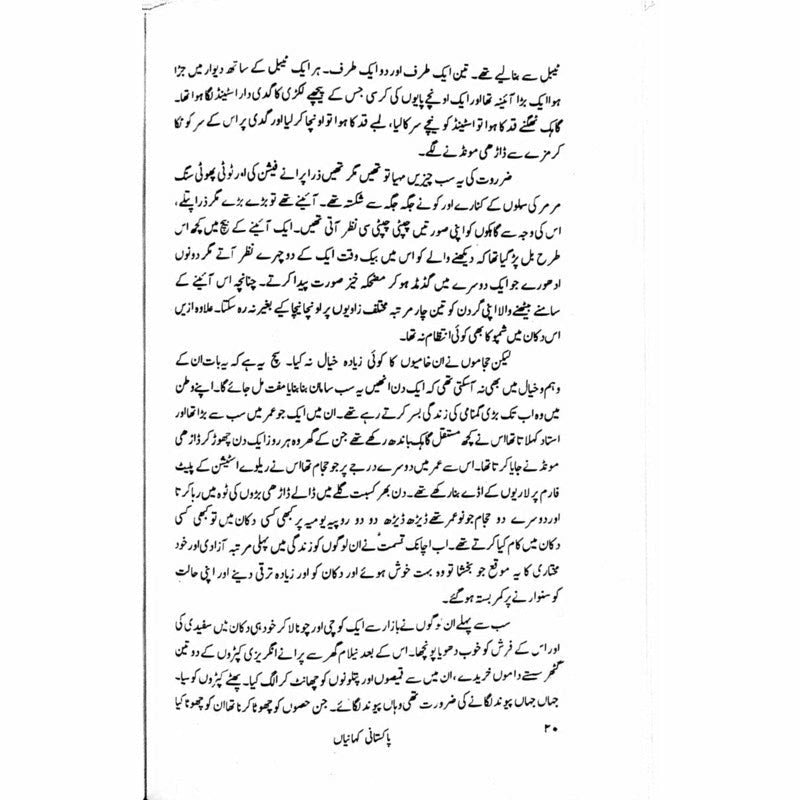 ٹیبل سے بنا لیے تھے۔ تین ایک طرف اور دو ایک طرف۔ ہر ایک ٹیبل کے ساتھ دیوار میں جڑا
ہوا ایک بڑا آئینہ تھا اور ایک اونچے پایوں کی کرسی جس کے پیچھے لکڑی کا گدی دار اسٹینڈ لگا ہوا تھا۔
گاہک ٹھگنے قد کا ہوا تو اسٹینڈ کو نیچے سرکا لیا، لمبے قد کا ہوا تو اونچا کر لیا اور گدی پر اس کے سر کو ٹکا
کر مزے سے ڈاڑھی مونڈنے لگے۔
ضرورت کی یہ سب چیزیں مہیا تو تھیں مگر تھیں ذرا پرانے فیشن کی اور ٹوٹی پھوٹی سنگ
مرمر کی سلوں کے کنارے اور کونے جگہ جگہ سے شکستہ تھے۔ آئینے تھے تو بڑے بڑے مگر ذرا پتلے،
اس کی وجہ سے گاہکوں کو اپنی صورتیں چپٹی چپٹی سی نظر آتی تھیں۔ ایک آئینے کے بیچ میں کچھ اس
طرح بل پڑ گیا تھا کہ دیکھنے والے کو اس میں بیک وقت ایک کے دو چہرے نظر آتے مگر دونوں
ادھورے جو ایک دوسرے میں گڈمڈ ہو کر مضحکہ خیز صورت پیدا کرتے۔ چنانچہ اس آئینے کے
سامنے بیٹھنے والا اپنی گردن کو تین چار مرتبہ مختلف زاویوں پر اونچا نیچا کیے بغیر نہ رہ سکتا۔ علاوہ ازیں
اس دکان میں شمپو کا بھی کوئی انتظام نہ تھا۔
لیکن حجاموں نے ان خامیوں کا کوئی زیادہ خیال نہ کیا۔ سچ یہ ہے کہ یہ بات ان کے
وہم و خیال میں بھی نہ آسکتی تھی کہ ایک دن انھیں یہ سب سامان بنا بنایا مفت مل جائے گا۔ اپنے وطن
میں وہ اب تک بڑی گمنامی کی زندگی بسر کرتے رہے تھے۔ ان میں ایک جو عمر میں سب سے بڑا تھا اور
استاد کہلاتا تھا اس نے کچھ مستقل گاہک باندھ رکھے تھے جن کے گھر وہ ہر روز ایک دن چھوڑ کر ڈاڑھی
مونڈنے جایا کرتا تھا۔ اس سے عمر میں دوسرے درجے پر جو حجام تھا اس نے ریلوے اسٹیشن کے پلیٹ
فارم پر لاریوں کے اڈے بنا رکھے تھے۔ دن بھر کسبت گلے میں ڈالے ڈاڑھی بڑوں کی ٹوہ میں رہا کرتا
اور دوسرے دو حجام جو نوعمر تھے ڈیڑھ ڈیڑھ دو دو روپیہ یومیہ پر کبھی کسی دکان میں تو کبھی کسی
دکان میں کام کیا کرتے تھے۔ اب اچانک قسمت نے ان لوگوں کو زندگی میں پہلی مرتبہ آزادی اور خود
مختاری کا یہ موقع جو بخشا تو وہ بہت خوش ہوئے اور دکان کو اور زیادہ ترقی دینے اور اپنی حالت
کو سنوارنے پر کمر بستہ ہو گئے۔
سب سے پہلے ان لوگوں نے بازار سے ایک کوچی اور چونا لا کر خود ہی دکان میں سفیدی کی
اور اس کے فرش کو خوب دھویا پونچھا۔ اس کے بعد نیلام گھر سے پرانے انگریزی کپڑوں کے دو تین
گٹھر سستے داموں خریدے، ان میں سے قمیصوں اور پتلونوں کو چھانٹ کر الگ کیا۔ پھٹے کپڑوں کو سیا۔
جہاں جہاں پیوند لگانے کی ضرورت تھی وہاں پیوند لگائے۔ جن حصوں کو چھوٹا کرنا تھا ان کو چھوٹا کیا
۲۰
پاکستانی کہانیاں